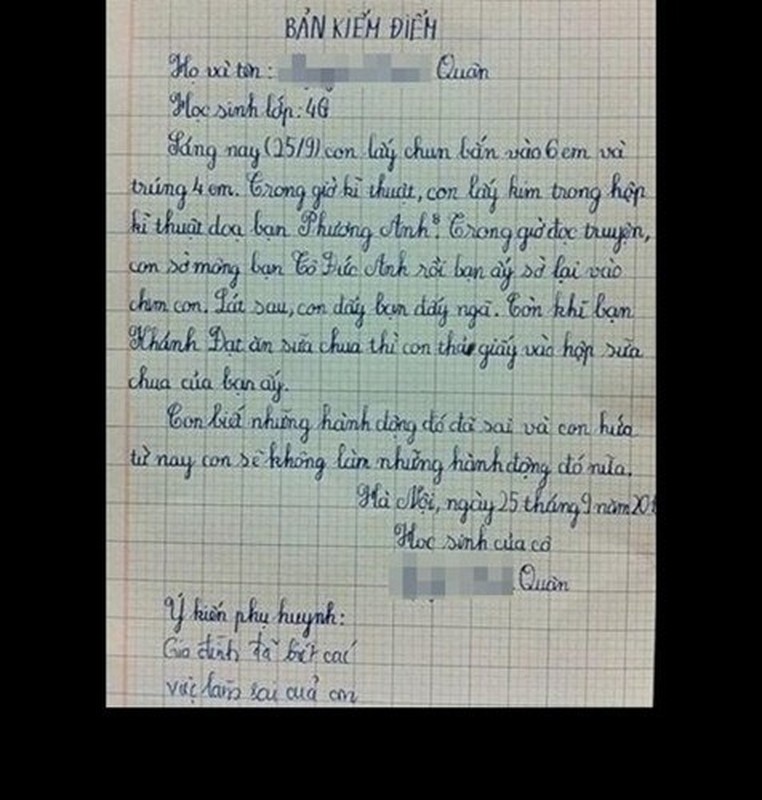 BẢN KIỂM ĐIỂM
Họ và tên: Quân
Học sinh lớp: 4G
Sáng nay (25/9) con lấy chun bắn vào 6 em và
trúng 4 em. Trong giờ kĩ thuật, con lấy kim trong hộp
kĩ thuật doạ bạn Phương Anh. Trong giờ đọc truyện,
con sờ mông bạn Tô Đức Anh rồi bạn ấy sờ lại vào
chim con. Lát sau, con đẩy bạn đấy ngã. Còn khi bạn
Khánh Đạt ăn sữa chua thì con thả giấy vào hộp sữa
chua của bạn ấy.
Con biết những hành động đó đã sai và con hứa
từ nay con sẽ không làm những hành động đó nữa.
Hà Nội, ngày 25 tháng 9 năm 201
Học sinh của cô
Quân
Ý kiến phụ huynh:
Gia đình đã biết các
việc làm sai của con